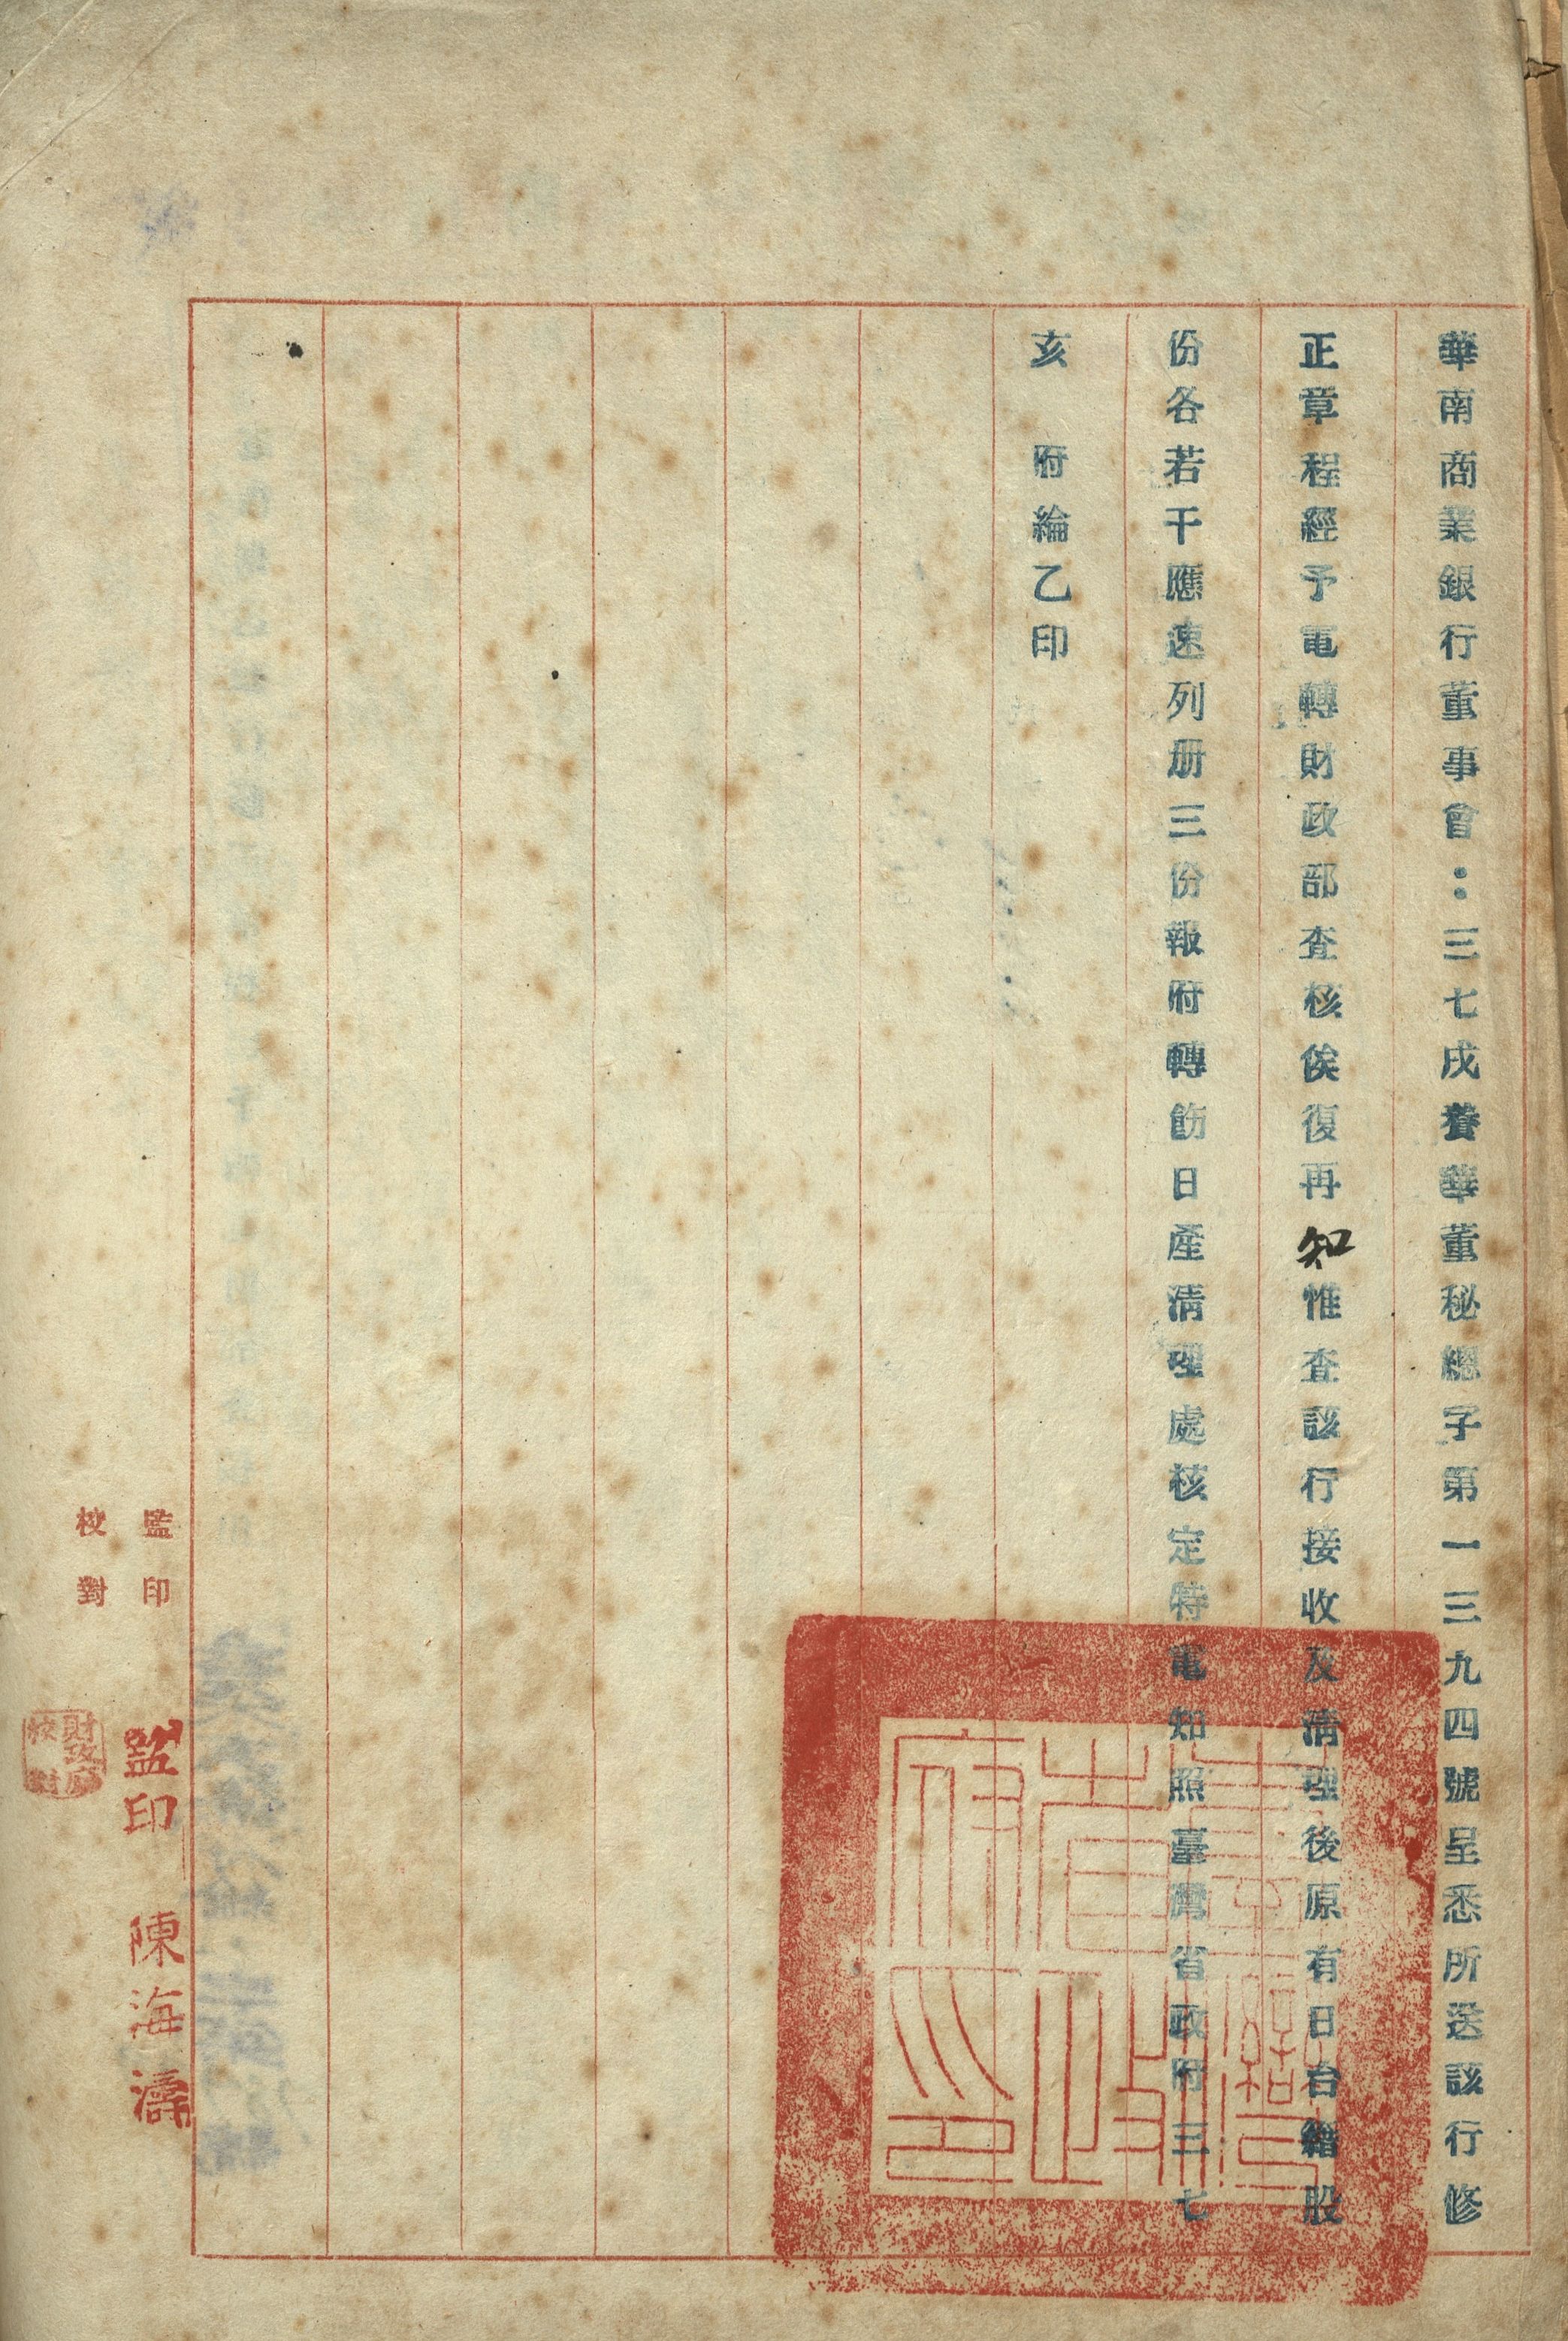 華南商業銀行董事會：三七戌養華董秘總字第一三九四號呈悉所送該行修
正章程經予電轉財政部查核俟復再知惟查該行接收及清理後原有日台籍股
份各若干應速列册三份報府轉飭日產清理處核定特電知照臺灣省政府三七
亥　府綸乙印
臺灣省政府印
監印
監印　陳海濤
校對
財政廳校對